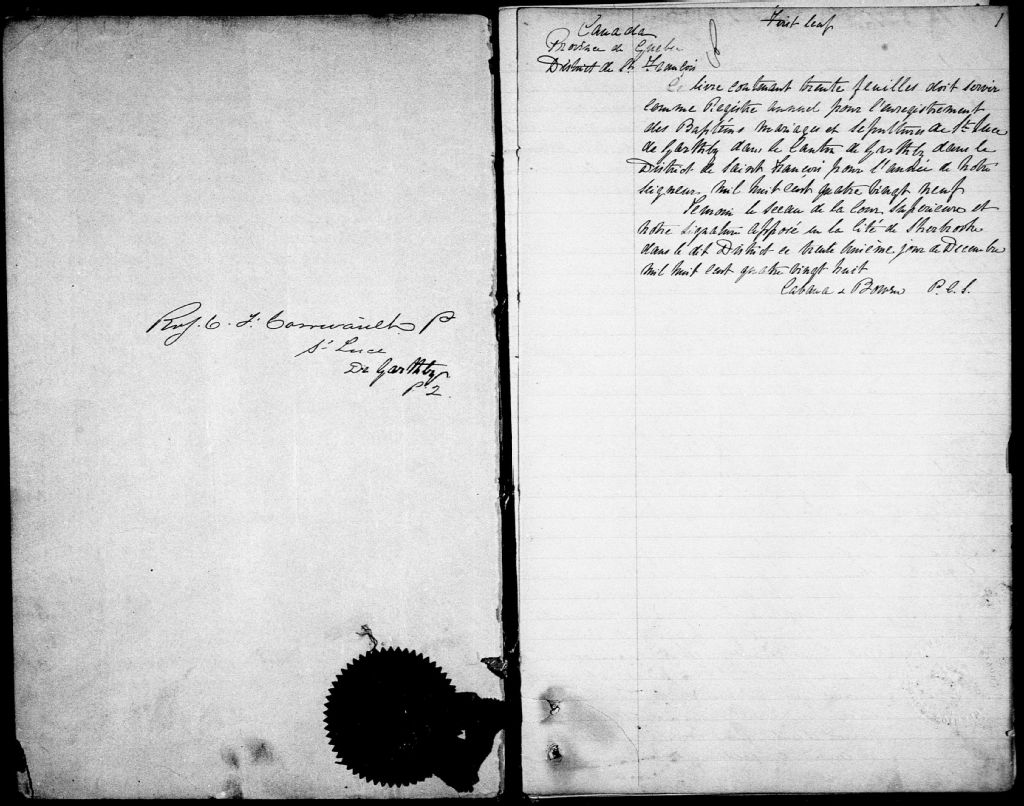 St Luce
De Garthby
P 2.
First leaf
1
Canada
Province de Quebec
District de St François
Ce livre contenant trente feuilles doit servir
comme Registre annuel pour l'enregistrement
des Baptêms mariages et sepultures de St Luce
de Garthby dans le Canton de Garthby dans le
District de Saint François pour l'année de notre
seigneur mil huit cent quatre vingt neuf
Temoin le sceau de la Cour Superieure et
notre signature apposé en la Cité de Sherbrooke
dans le dit District ce trente unième jour de Decembre
mil huit cent quatre vingt huit
Cabana & Bowen P. C. S.